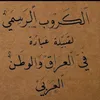 الكروب الرسمي
لقبيلة عبادة
في العراق والوطن
العربي